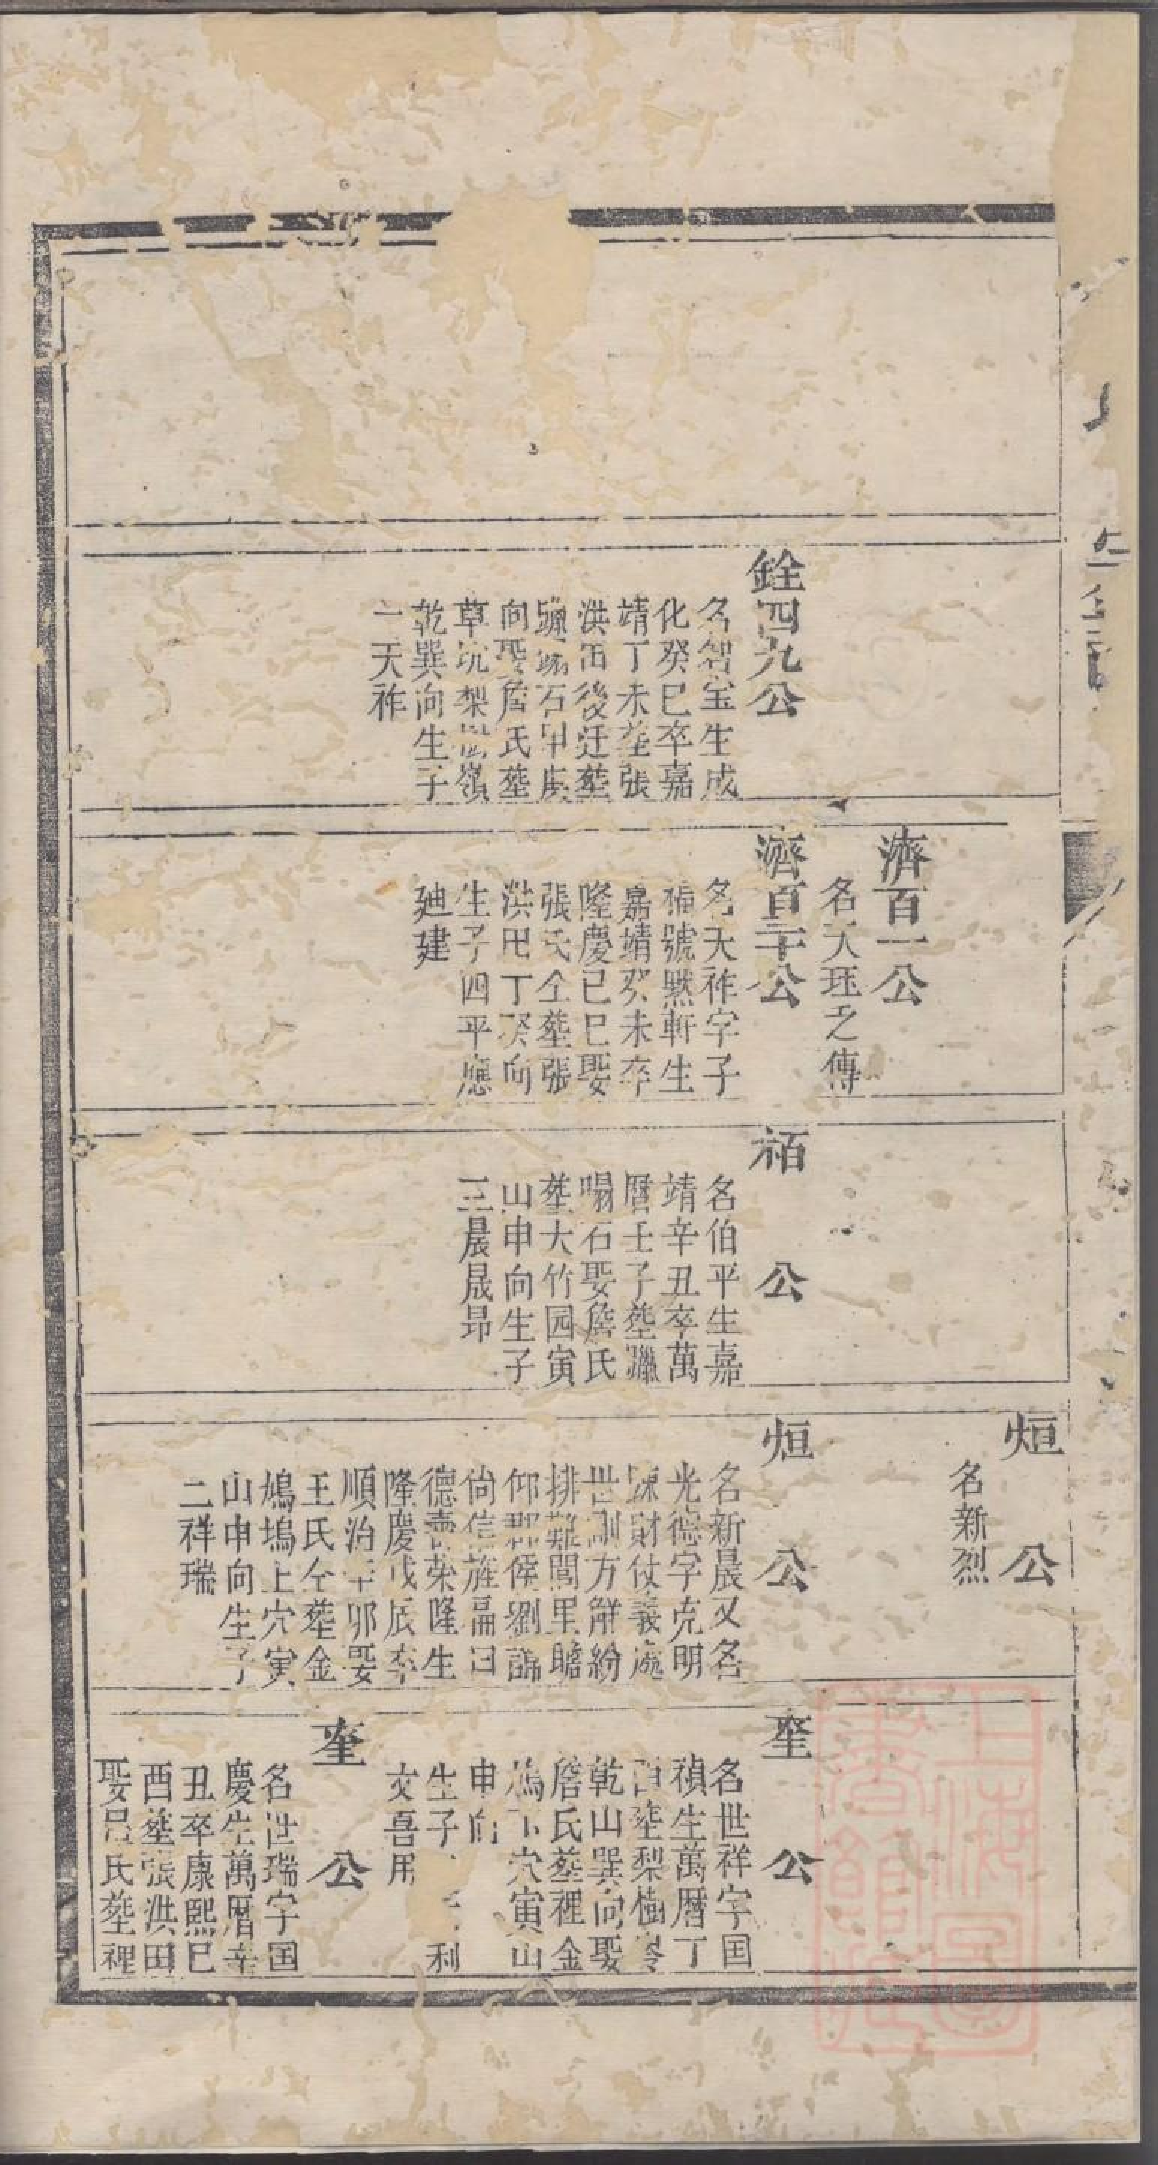 銓四九公
名智宝生成
化癸巳卒嘉
靖丁未塟張
洪田後迁塟
石甲庚
向娶詹氏塟
草坑梨樹嶺
乾巽向生子
一天祚
濟百一公
名天珏乏傳
濟百二十公
名天祚字子
福號黙軒生
嘉靖癸未卒
隆慶己巳娶
張氏仝塟張
洪田丁癸向
生子四平應
廸建
栢公
名伯平生嘉
靖辛丑卒萬
曆壬子塟
石娶詹氏
塟大竹园寅
山申向生子
三晨晟昂
烜公
名新烈
烜公
名新晨又名
光德字克明
踈財仗義處
世剛方觧紛
排難閭里瞻
仰郡侯劉諱
尚信旌匾曰
德壽荣隆生
隆慶戊辰卒
順治辛卯娶
王氏仝塟金
鳩塢上穴寅
山申向生子
二祥瑞
奎公
名世祥字国
禎生萬曆丁
塟梨樹岺
乾山巽向娶
詹氏塟裡金
鳩下穴寅山
申向
生子 利
文吾用
奎公
名世瑞字国
慶生萬曆辛
丑卒康熙己
酉塟張洪田
娶呂氏塟裡